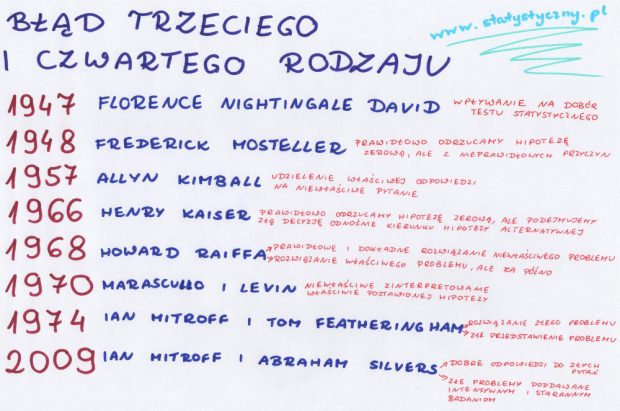 BŁĄD TRZECIEGO
I CZWARTEGO RODZAJU
www.statystyczny.pl
1947 FLORENCE NIGHTINGALE DAVID WPŁYWANIE NA DOBÓR
TESTU STATYSTYCZNEGO
1948 FREDERICK MOSTELLER PRAWIDŁOWO ODRZUCAMY HIPOTEZĘ
ZEROWĄ, ALE Z NIEPRAWIDŁOWYCH PRZYCZYN
1957 ALLYN KIMBALL UDZIELENIE WŁAŚCIWEJ ODPOWIEDZI
NA NIEWŁAŚCIWE PYTANIE
1966 HENRY KAISER PRAWIDŁOWO ODRZUCAMY HIPOTEZĘ ZEROWĄ, ALE PODEJMUJEMY
ZŁĄ DECYZJĘ ODNOŚNIE KIERUNKU HIPOTEZY ALTERNATYWNEJ
1968 HOWARD RAIFFA PRAWIDŁOWE I DOKŁADNE ROZWIĄZANIE NIEWŁAŚCIWEGO PROBLEMU
ROZWIĄZANIE WŁAŚCIWEGO PROBLEMU, ALE ZA PÓŹNO
1970 MARASCUILO I LEVIN NIEWŁAŚCIWE ZINTERPRETOWANIE
WŁAŚCIWIE POSTAWIONEJ HIPOTEZY
1974 IAN MITROFF I TOM FEATHERINGHAM ROZWIĄZANIE ZŁEGO PROBLEMU
ZŁE PRZEDSTAWIENIE PROBLEMU
2009 IAN MITROFF I ABRAHAM SILVERS DOBRE ODPOWIEDZI DO ZŁYCH
PYTAŃ
ZŁE PROBLEMY PODDAWANE
INTENSYWNYM I STARANNYM
BADANIOM